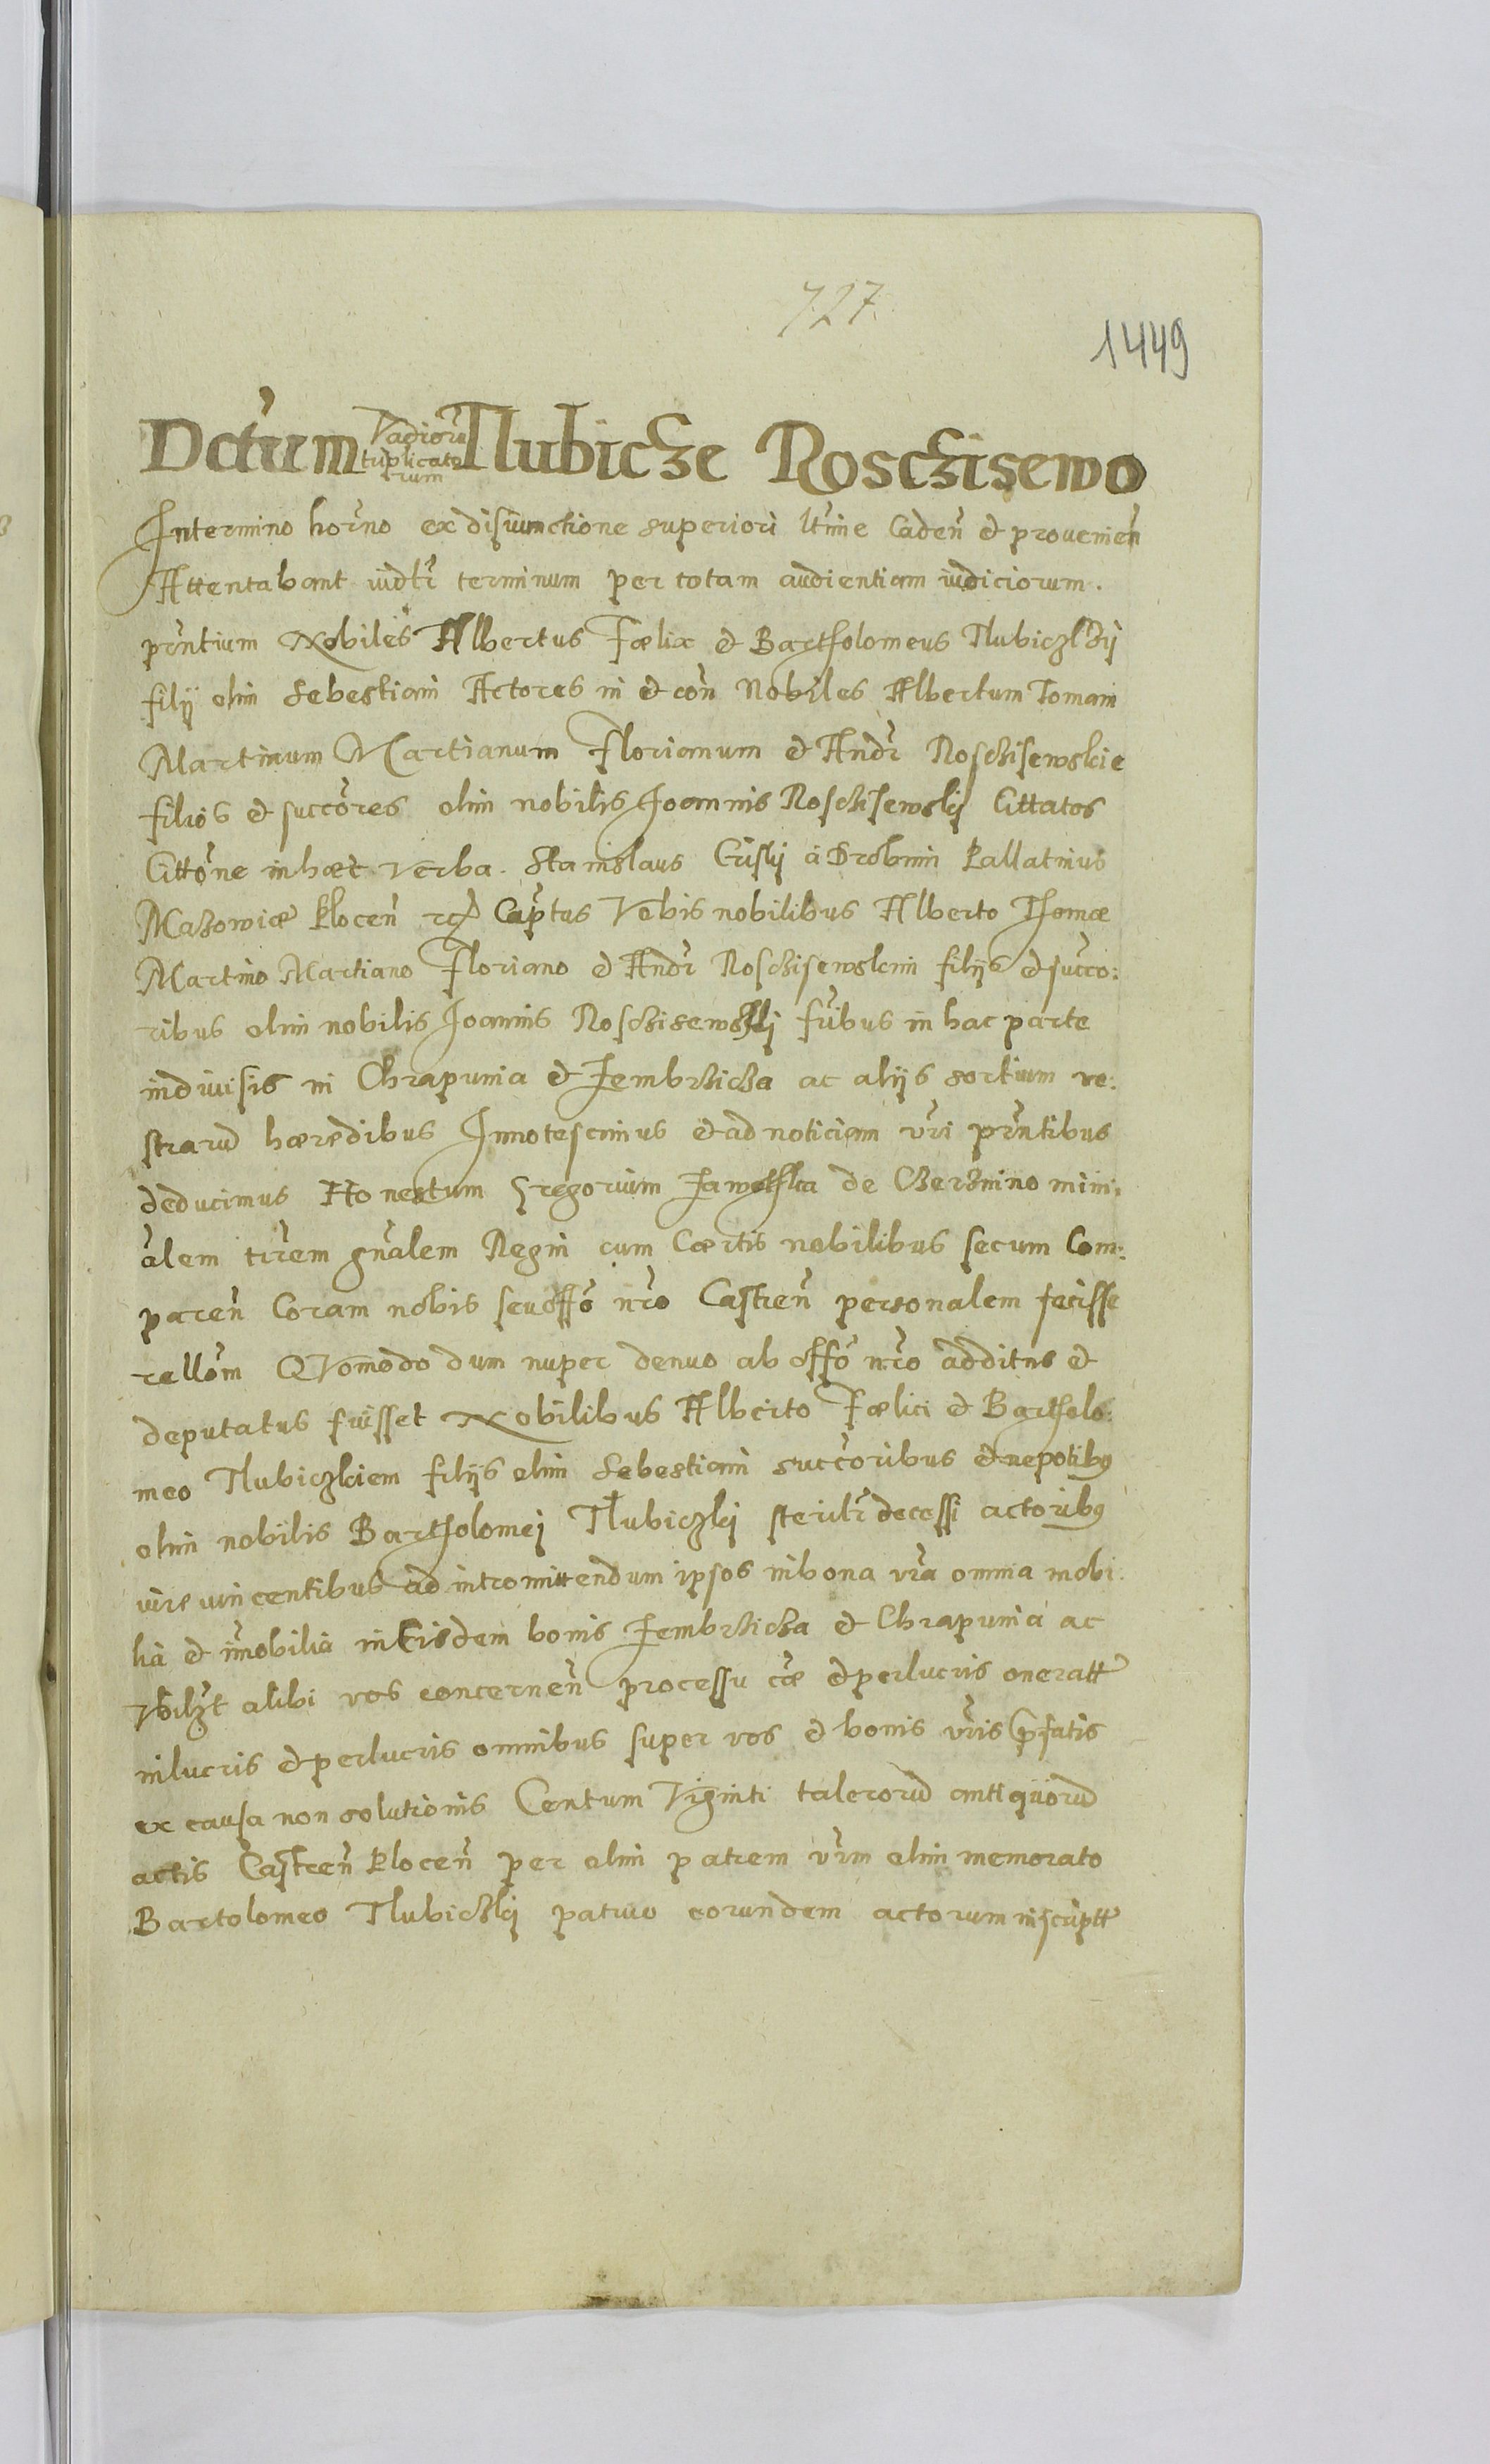 727
1449
Dctum Vadiorū triplicatorum Tlubicze Rosczisewo
In termino horno ex disiunctione superiori ltime Caden et provenien
Attentabant iudtr terminum per totam audientiam iudiciorum.
prntium Nobiles Albertus Fœlix et Bartholomeus Tlubiczkij
filij olim Sebestiani Actores in et con Nobiles Albertum Tomam
Martinum Martianum Florianum et Andr Roschisewskie
filios et succōres olim nobilis Joannis Roschisewskij Cittatos
Cittōne in hæc verba. Stanislaus Crisky à Drobnin Pallatinus
Mazowiæ Plocen Captus Vobis nobilibus Alberto Thomæ
Martino Martiano Floriano et Andr Roschisewskim filijs et succo:
ribus olim nobilis Joannis Roschisewskij fribus in hac parte
indivisis in Chrapunia et Jembrzicza ac alijs sortium ve:
strarū hæredibus Innotescimus et ad noticiam vri prntibus
deducimus Honestum Gregorium de Czerznino mini:
alem trrem gnalem Regni cum Cœrtis nobilibus secum Com:
paren Coram nobis seu offo nro Castren personalem fecisse
rellom Quomodo dum nuper denuo ab offo nro additus et
deputatus fuisset Nobilibus Alberto Fœlici et Bartholo:
meo Tlubiczkiem filijs olim Sebestiani succoribus et nepotibus
olim nobilis Bartholomej Tlubiczkj sterilr decessi actoribus
iure vincentibus ad intromittendum ipsos in bona vra omnia mobi:
lia et imobilia in Eisdem bonis Jembrzicza et Chrapunia ac
alibi vos concernen processu cæ et perlucris oneratt
in lucris et perlucris omnibus super vos et bonis vris prfatis
ex causa non solutionis Centum Viginti talerorū antiquorū
actis Castren Plocen per olim patrem vrm olim memorato
Bartolomeo Tlubiczkj patruo eorundem actorum inscriptt